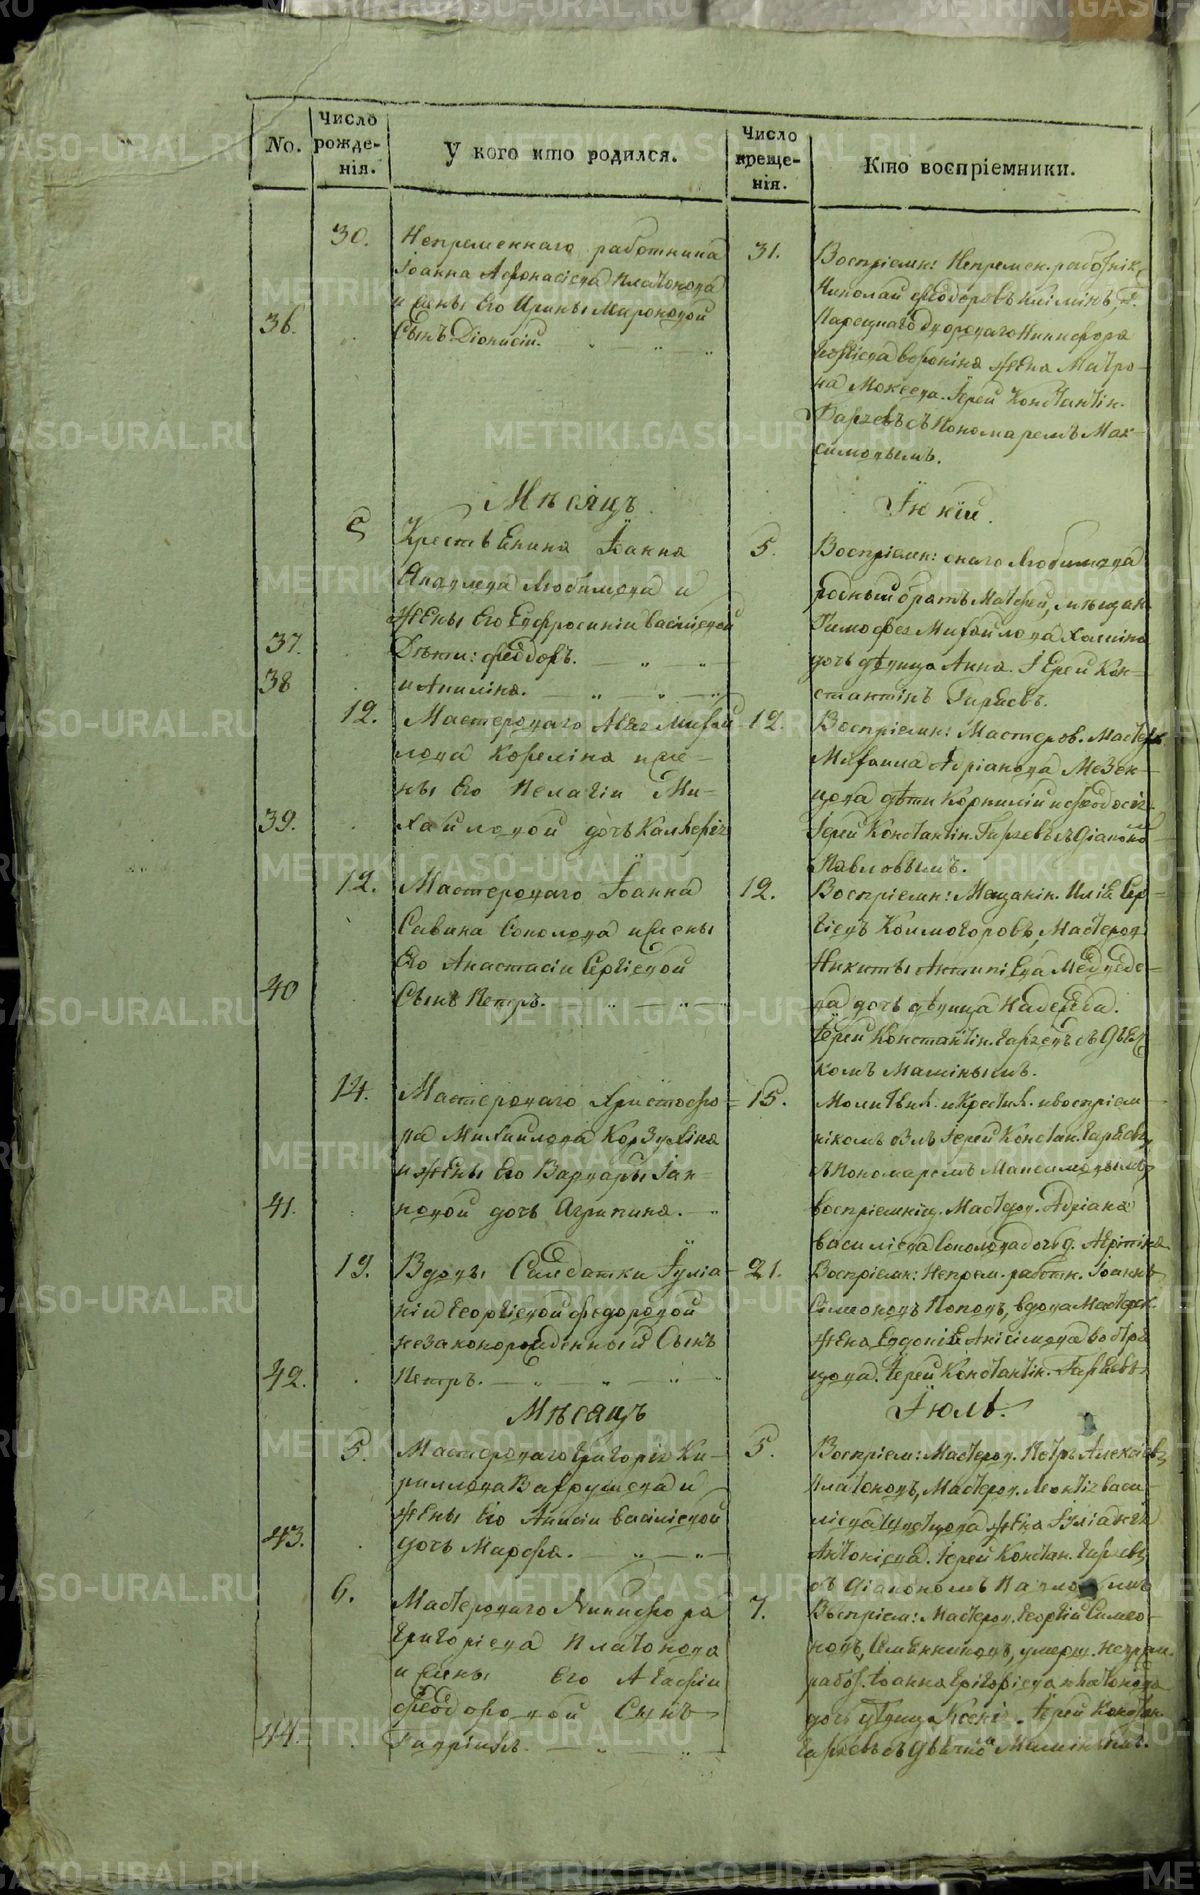 No.
Число рожде- нія.
У кого кто родился.
Число креще- нія.
Кто воспріемники.
30.
Непременнаго работника
Іоанна Афонасіева Платонова
и жены Его Ирины Мироновой
36.
Сынъ Діонисій.
31.
Воспріемн: Непремен. работник
Николай Феодоровъ
Нарочнаго Никифора
Воронина жена Матро-
на Мокеева. Іерей Константін.
Гаряевъ съ Пономаремъ Мак-
симовымъ.
Мѣсяцъ
Іюній.
5
Крестьенина Іоанна
Любимова и
жены Его Евфросиніи Васіліевой
37.
Дѣти: Феодоръ.
38
и Акилина.
5.
Воспріемн: онаго Любимова
родный братъ Матфей, мѣщан.
Тимофея Михайлова
дочь дѣвица Анна. Іерей Кон-
стантінъ Гаряевъ.
12.
Мастероваго Михай
лова Кореліна и же-
ны Его Пелагіи Ми-
39.
хайловой дочь
12.
Воспріемн: Мастеров. Мастер
Михаила Адріанова Мезен-
цова дѣти Корнилій и Феодосія
Іерей Константін. Гаряевъ съ Діаконо
Павловымъ.
12.
Мастероваго Іоанна
Савина Соколова и жены
Его Анастасіи Сергіевой
40
Сынъ Петръ.
12.
Воспріемн: Мещанін. Илія Сер-
гіевъ Колмогоровъ, Мастеров
Никиты Антипіева Медведе-
ва дочь дѣвица Надежда.
Іерей Константін. Гаряевъ съ Дьяч
комъ Маминымъ.
14.
Мастероваго Христофо-
ра Михайлова Корзухіна
и жены Его Варвары Іан-
41.
новой дочь Агрипина.
15.
Молитвил. и Крестил. и воспріем-
нікомъ былъ Іерей Констан. Гаряевъ
съ Пономаремъ Максимовымъ
воспріемніц. Мастеров. Адріана
Василіева Соколова дочь д.
19.
Вдовы Салдатки Іуліа-
ніи Георгіевой Федоровой
незаконорожденный Сынъ
42.
Петръ.
21.
Воспріемн: Непрем. работн. Іоаннъ
Симеоновъ Поповъ, вдова Мастерск.
жена Евдокія Анісімова
цова. Іерей Константін. Гаряевъ
Мѣсяцъ
Іюль.
5.
Мастероваго Григорія Ки-
риллова Вахрушева и
жены Его Анисіи Васіліевой
43.
дочь Марфа.
5.
Воспріем: Мастеров. Петръ Алексіевъ
Платоновъ, Мастеров. Леонтія Васи-
ліева жена Іуліанія
Антоніева. Іерей Констан. Гаряевъ
съ Діакономъ Павловымъ
6.
Мастероваго Никифора
Григоріева Платонова
и жены Его Агафіи
Феодоровой Сынъ
44.
Гавріилъ.
7.
Воспріем: Мастеров. Георгій Симео-
новъ, умерш. непрем.
работ. Іоанна Григоріева Платонова
дочь дѣвица Ксенія. Іерей Констан.
Гаряевъ съ Дьячко Маминымъ.